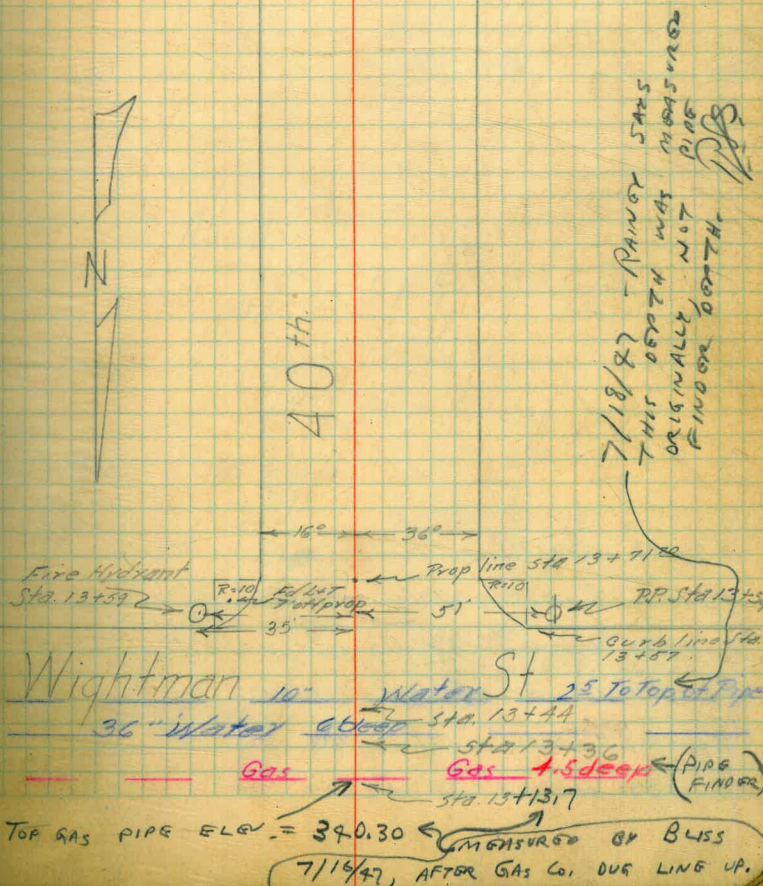 7/18/47 - RAINEY SAYS
THIS DEPTH WAS MEASURED
ORIGINALLY, NOT PIPE
FINDER DEPTH.
N
40th.
16⁰ 36⁰
Prop line sta 13+71
Fire Hydrant
Sta. 13+59
R=10
R=10
35' 51'
P.P. Sta 13+5
Curb line sta.
13+57
Wightman St
10" Water 2⁵ To Top of Pipe
36" Water 6 Deep
Sta. 13+44
Sta 13+36
Gas Gas 4.5 deep
(PIPE
FINDER)
Sta. 13+13.7
TOP GAS PIPE ELEV. = 340.30
MEASURED BY BLISS
7/16/47, AFTER GAS CO. DUG LINE UP.